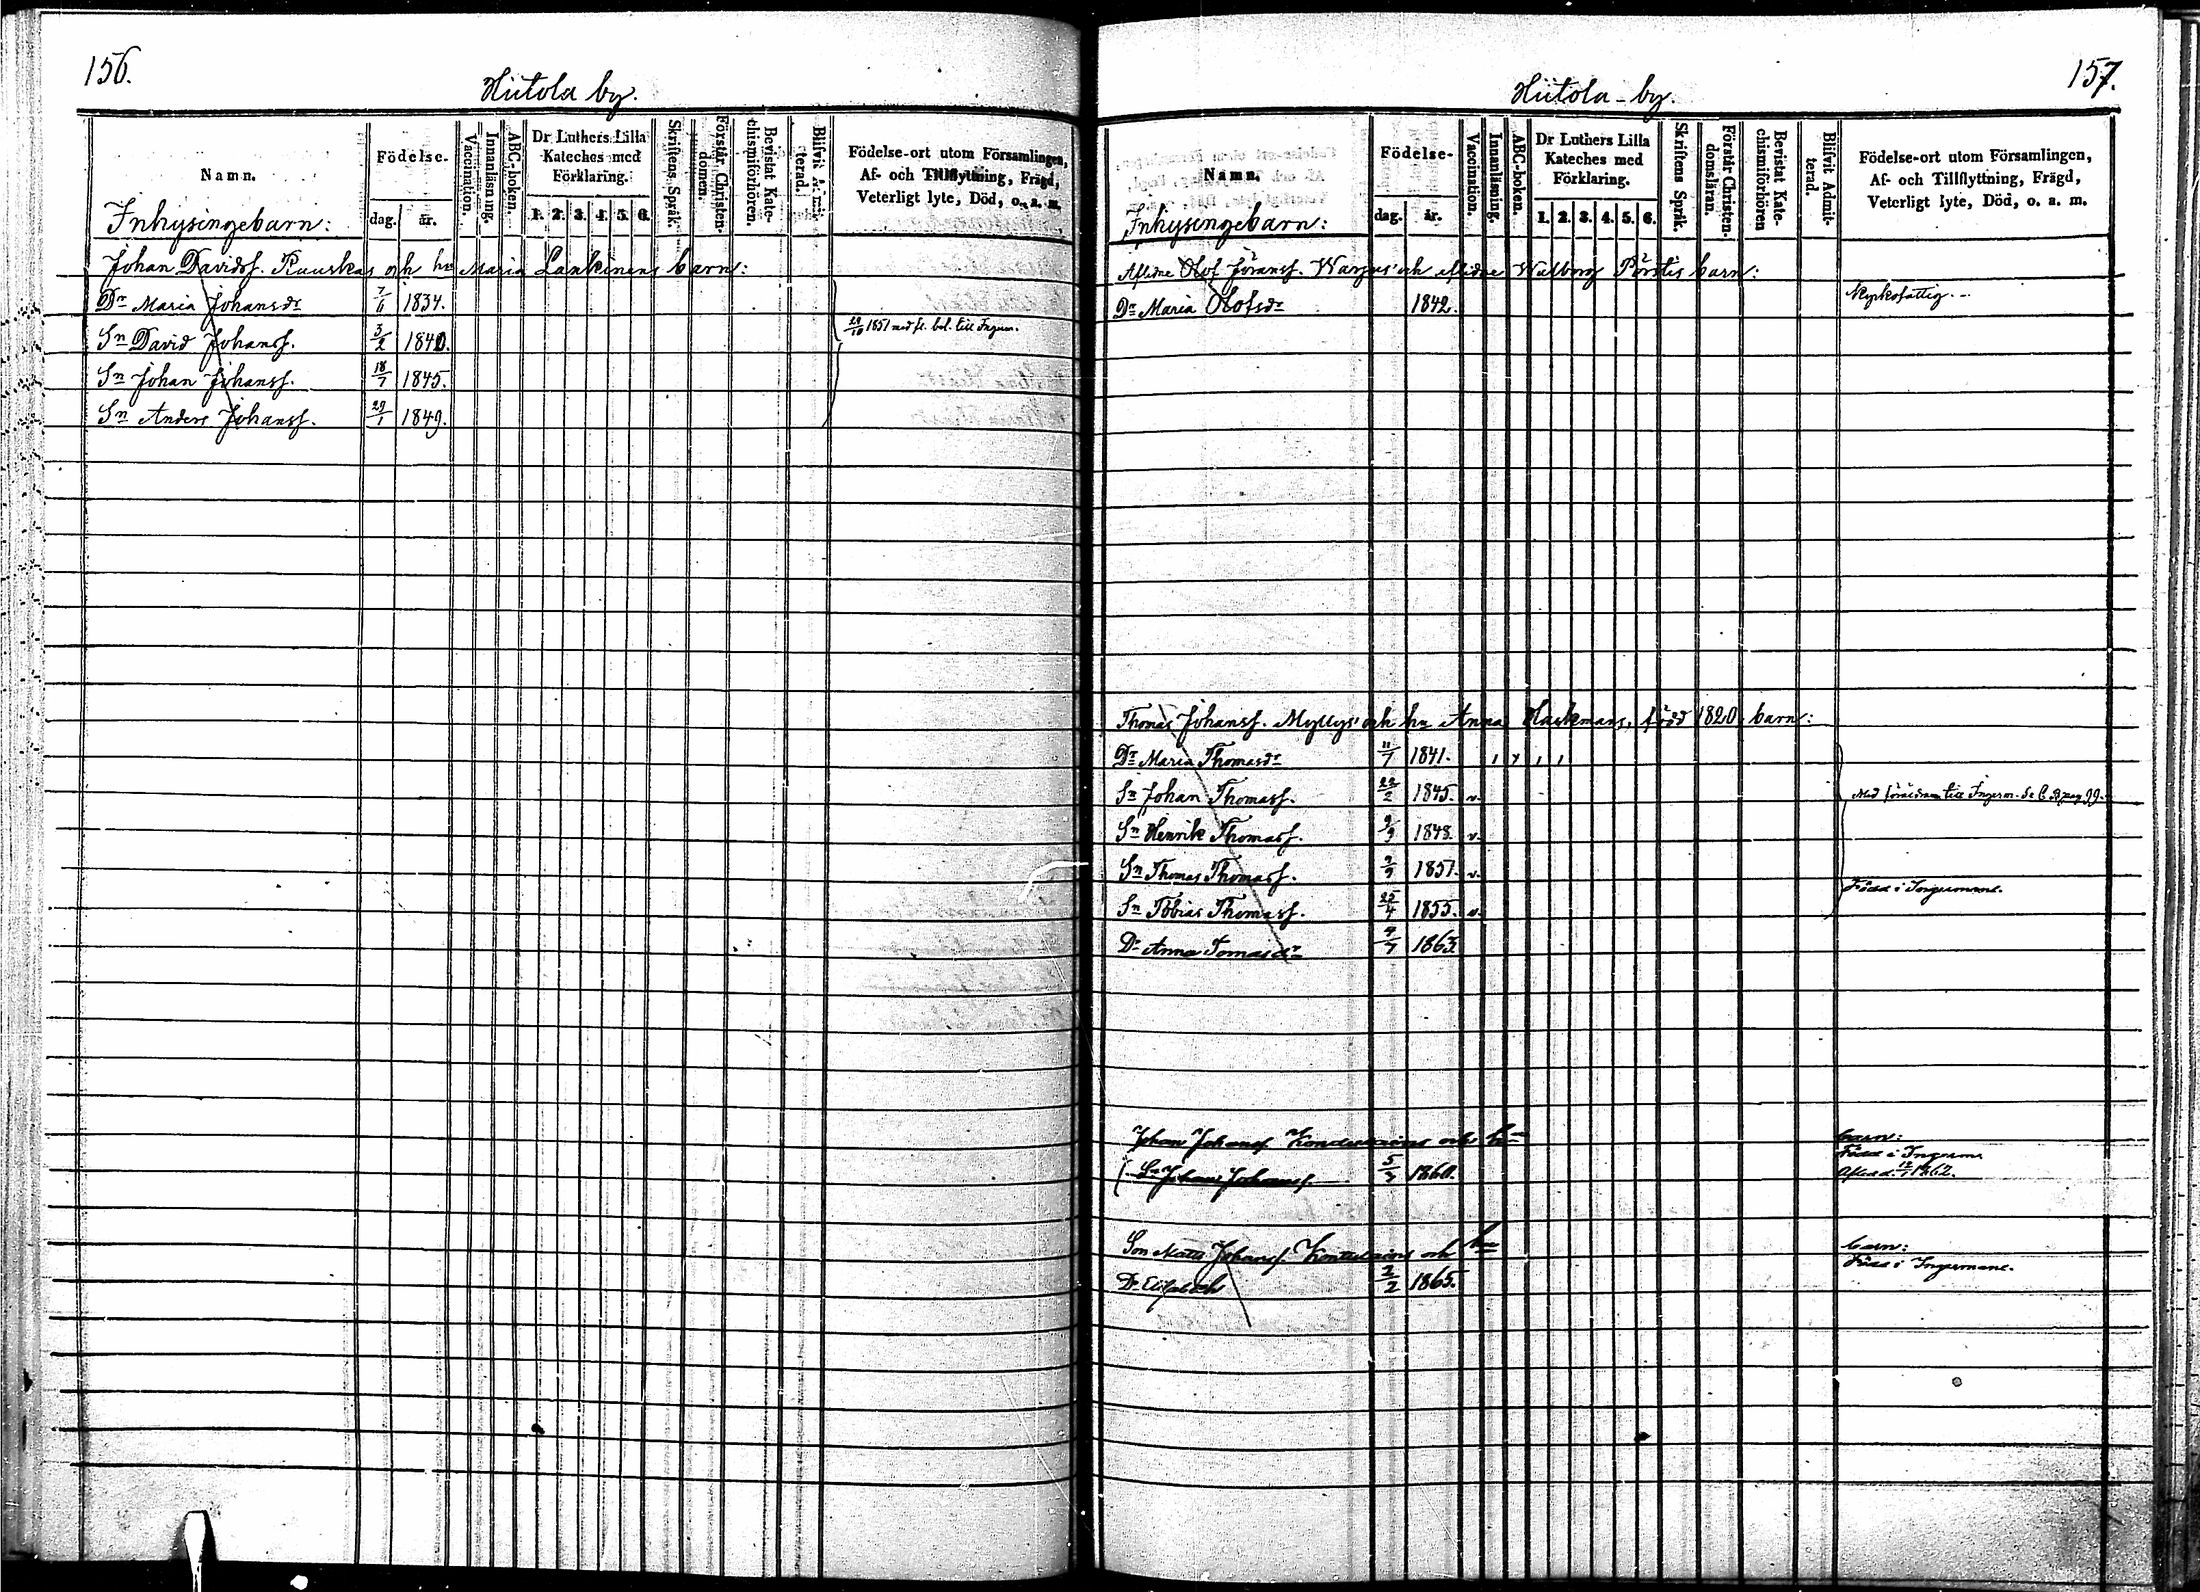 156.
Hiitola by.
Namn.
Födelse-
dag. år.
Vaccination.
Innanläsning.
ABC-boken.
Dr Luthers Lilla
Kateches med
Förklaring.
1. 2. 3. 4. 5. 6.
Skriftens Språk.
Förstår Christen-
domen.
Bevistat Kate-
chismiförhören.
Blifvit Admit-
terad.
Födelse-ort utom Församlingen,
Af- och Tillflyttning, Frägd,
Veterligt lyte, Död, o. a. m.
Inhysingebarn:
Johan Davidsf. Ruuskas och hu Maria Lankinens barn:
Dr Maria Johansdr 7/11 1834.
Sn David Johansf. 3/2 1840. 29/10 1851 med fl. bet. till Ingerm.
Sn Johan Johansf. 18/7 1845.
Sn Anders Johansf. 29/1 1849.
157.
Hiitola by.
Namn.
Födelse-
dag. år.
Vaccination.
Innanläsning.
ABC-boken.
Dr Luthers Lilla
Kateches med
Förklaring.
1. 2. 3. 4. 5. 6.
Skriftens Språk.
Förstår Christen-
domsläran.
Bevistat Kate-
chismiförhören
Blifvit Admit-
terad.
Födelse-ort utom Församlingen,
Af- och Tillflyttning, Frägd,
Veterligt lyte, Död, o. a. m.
Inhysingebarn:
Aflidne Olof Göransf. Warpus och aflidne Walborg Pörstis barn:
Dr Maria Olofsdr 1842. Kyrkofattig.
Thomas Johansf. Myllys och hu Anna Hackmans, född 1820, barn:
Dr Maria Thomasdr 11/1 1841.
Sn Johan Thomasf. 22/2 1845. v. Med föräldrarna till Ingerm. Se C.B. pag 99.
Sn Henrik Thomasf. 9/9 1848. v.
Sn Thomas Thomasf. 2/9 1851. v.
Sn Tobias Thomasf. 25/4 1855. v. Född i Ingermanl.
Dr Anna Tomasdr 9/7 1863.
Johan Johansf. och hu barn:
Sn Johan Johansf. 5/3 1860. Född i Ingerm.
Afled d. 12/1 1862.
Son Matts Johansf. och hu barn:
Dr Elisabeth 2/2 1865. Född i Ingermanl.